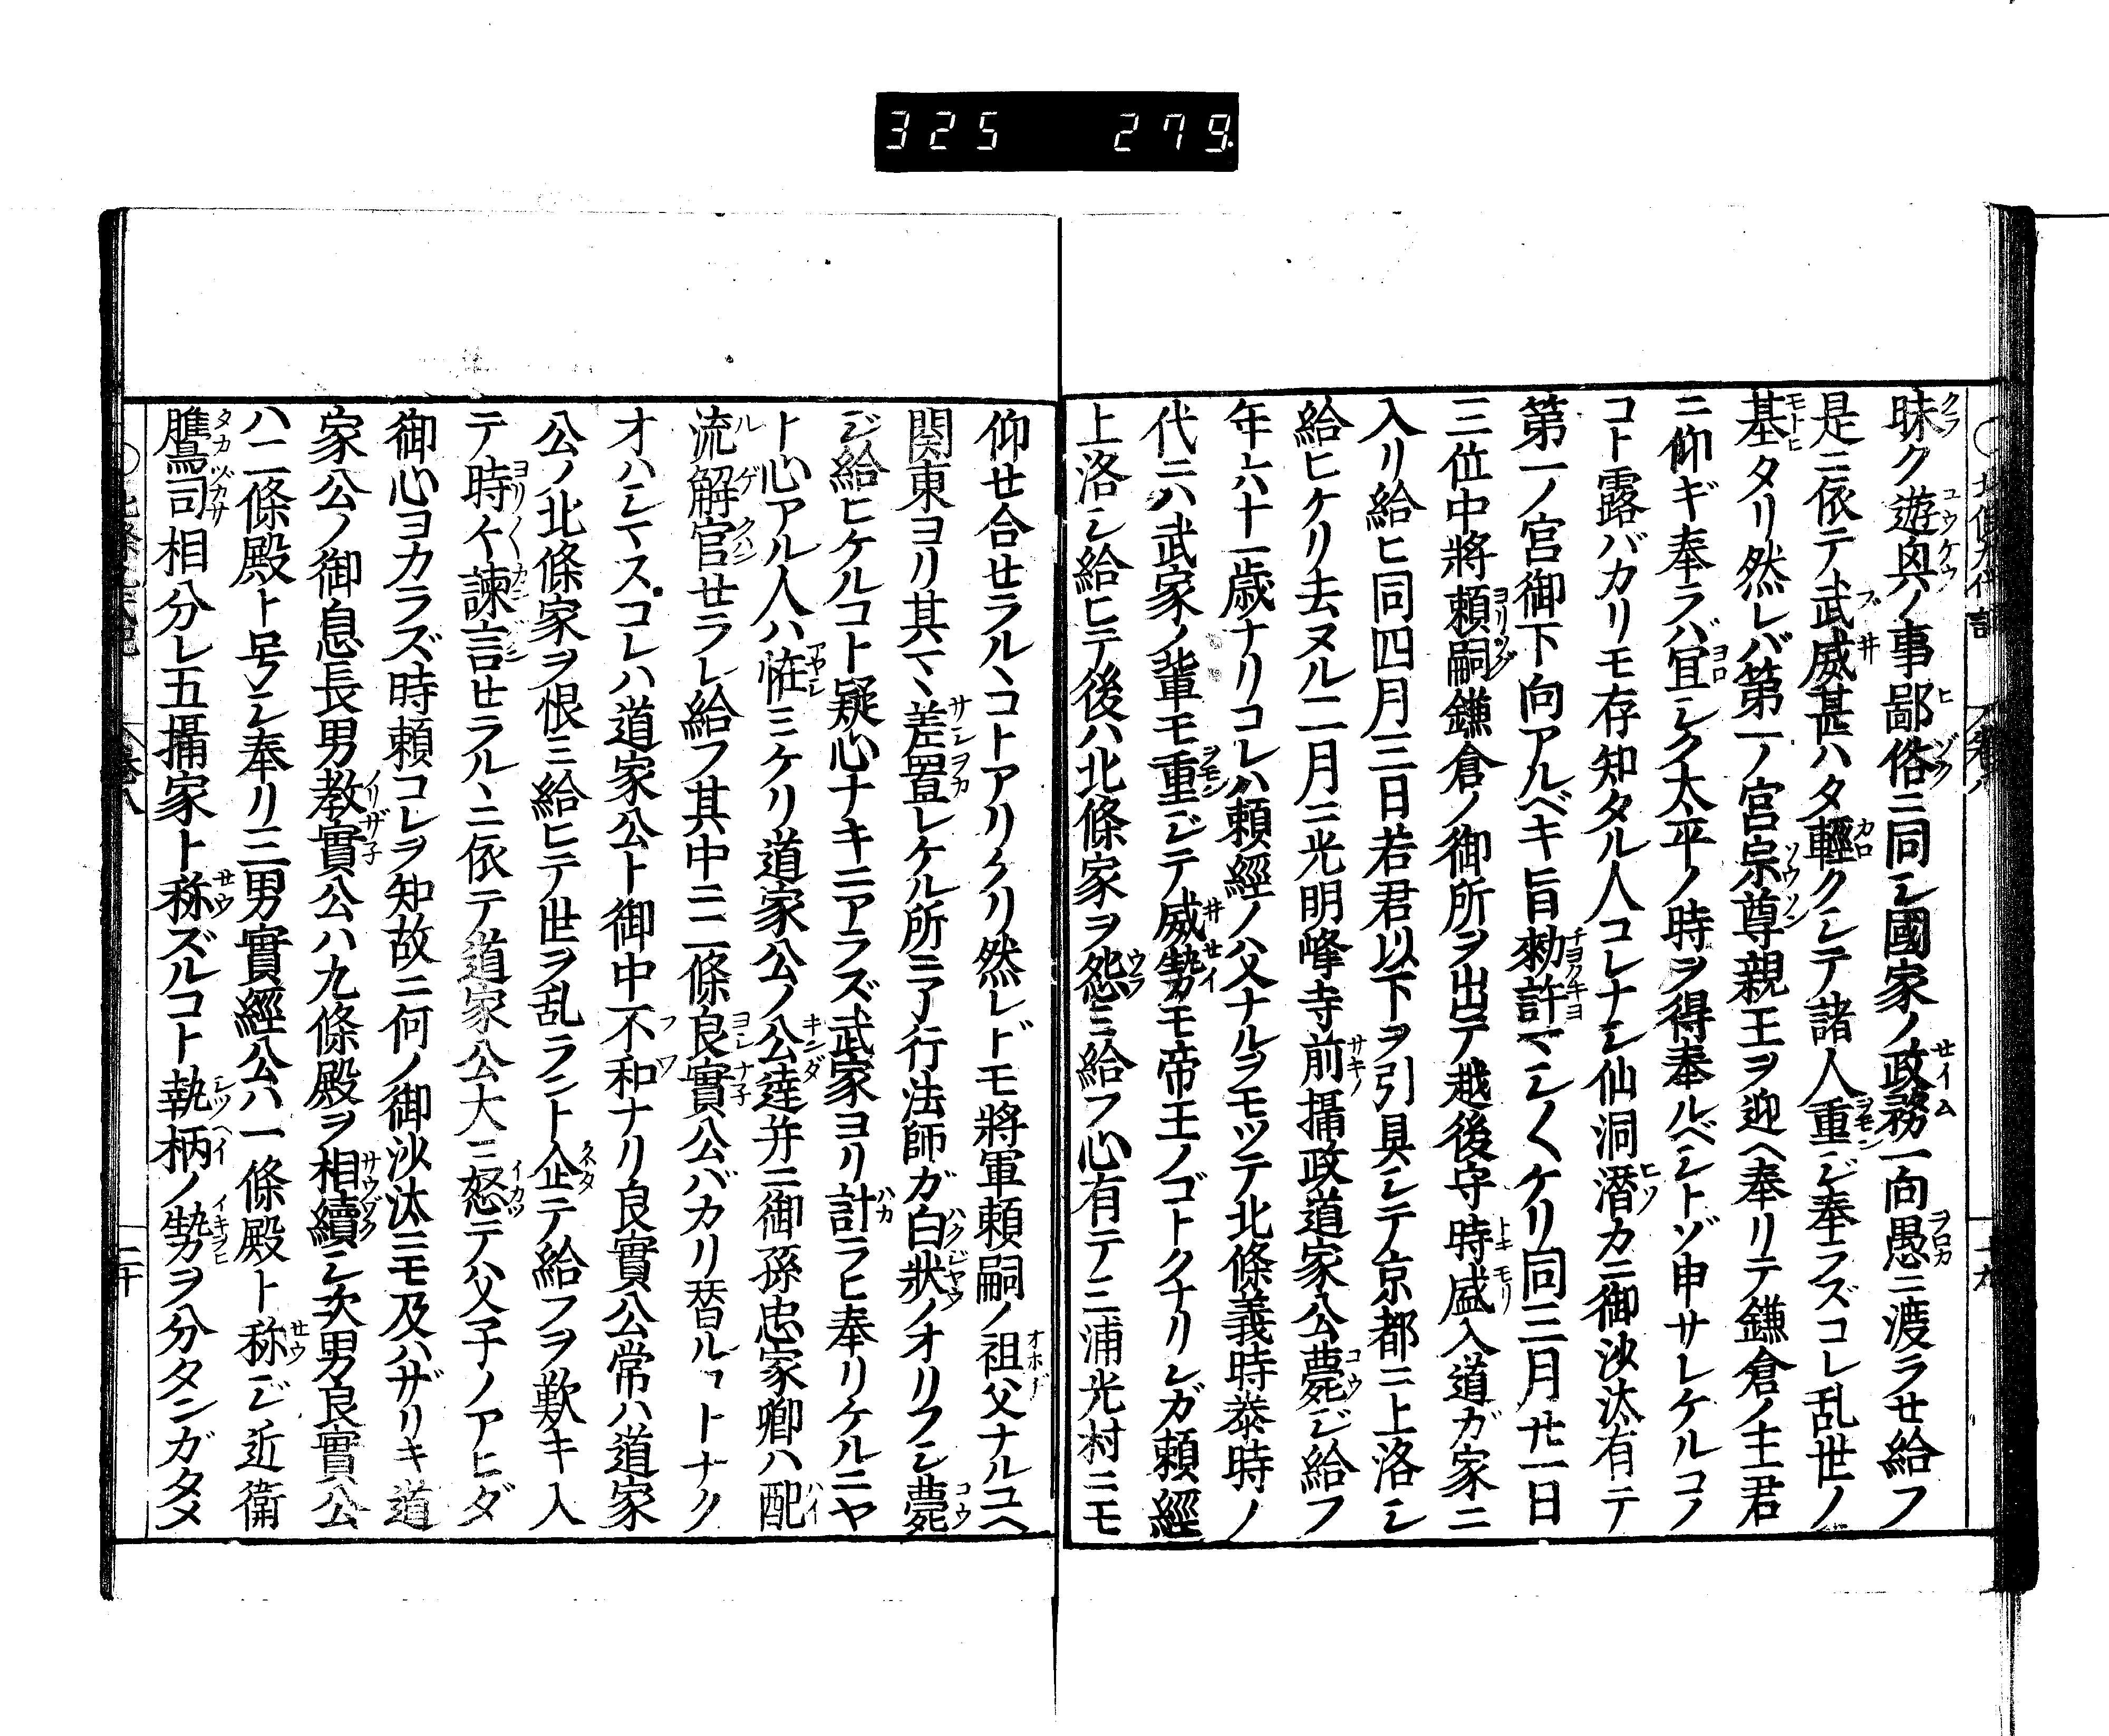 325 279
昧ク遊興ノ事鄙俗ニ同シ國家ノ政務一向愚ニ渡ラセ給フ
是ニ依テ武威甚ハタ輕クシテ諸人重ジ奉ラズコレ乱世ノ
基タリ然レバ第一ノ宮宗尊親王ヲ迎ヘ奉リテ鎌倉ノ主君
ニ仰ギ奉ラバ宜シク太平ノ時ヲ得奉ルベシトゾ申サレケルコノ
コト露バカリモ存知タル人コレナシ仙洞潜カニ御沙汰有テ
第一ノ宮御下向アルベキ旨勅許マシ〱ケリ同三月廿一日
三位中將頼嗣鎌倉ノ御所ヲ出テ越後守時盛入道ガ家ニ
入リ給ヒ同四月三日若君以下ヲ引具シテ京都ニ上洛シ
給ヒケリ去ヌル二月ニ光明峰寺前攝政道家公薨ジ給フ
年六十一歳ナリコレハ頼經ノ父ナルヲモツテ北條義時泰時ノ
代ニハ武家ノ輩モ重ジテ威勢モ帝王ノゴトクナリシガ頼經
上洛シ給ヒテ後ハ北條家ヲ怨ミ給フ心有テ三浦光村ニモ
仰せ合せラルヽコトアリケリ然レドモ將軍頼嗣ノ祖父ナルユヘ
関東ヨリ其マヽ差置レケル所ニ了行法師ガ白狀ノオリフシ薨
ジ給ヒケルコト疑心ナキニアラズ武家ヨリ計ラヒ奉リケルニヤ
ト心アル人ハ恠ミケリ道家公ノ公達并ニ御孫忠家卿ハ配
流解官せラレ給フ其中ニ二條良實公バカリ替ルヿトナク
オハシマスコレハ道家公ト御中不和ナリ良實公常ハ道家
公ノ北條家ヲ恨ミ給ヒテ世ヲ乱ラント企テ給フヲ歎キ入
テ時々諫言せラルヽニ依テ道家公大ニ怒テ父子ノアヒダ
御心ヨカラズ時頼コレヲ知故ニ何ノ御沙汰ニモ及ハザリキ道
家公ノ御息長男教實公ハ九條殿ヲ相續シ次男良實公
ハ二條殿ト号シ奉リ三男實經公ハ一條殿ト称ジ近衞
鷹司相分レ五攝家ト称ズルコト執柄ノ勢ヲ分タンガタメ